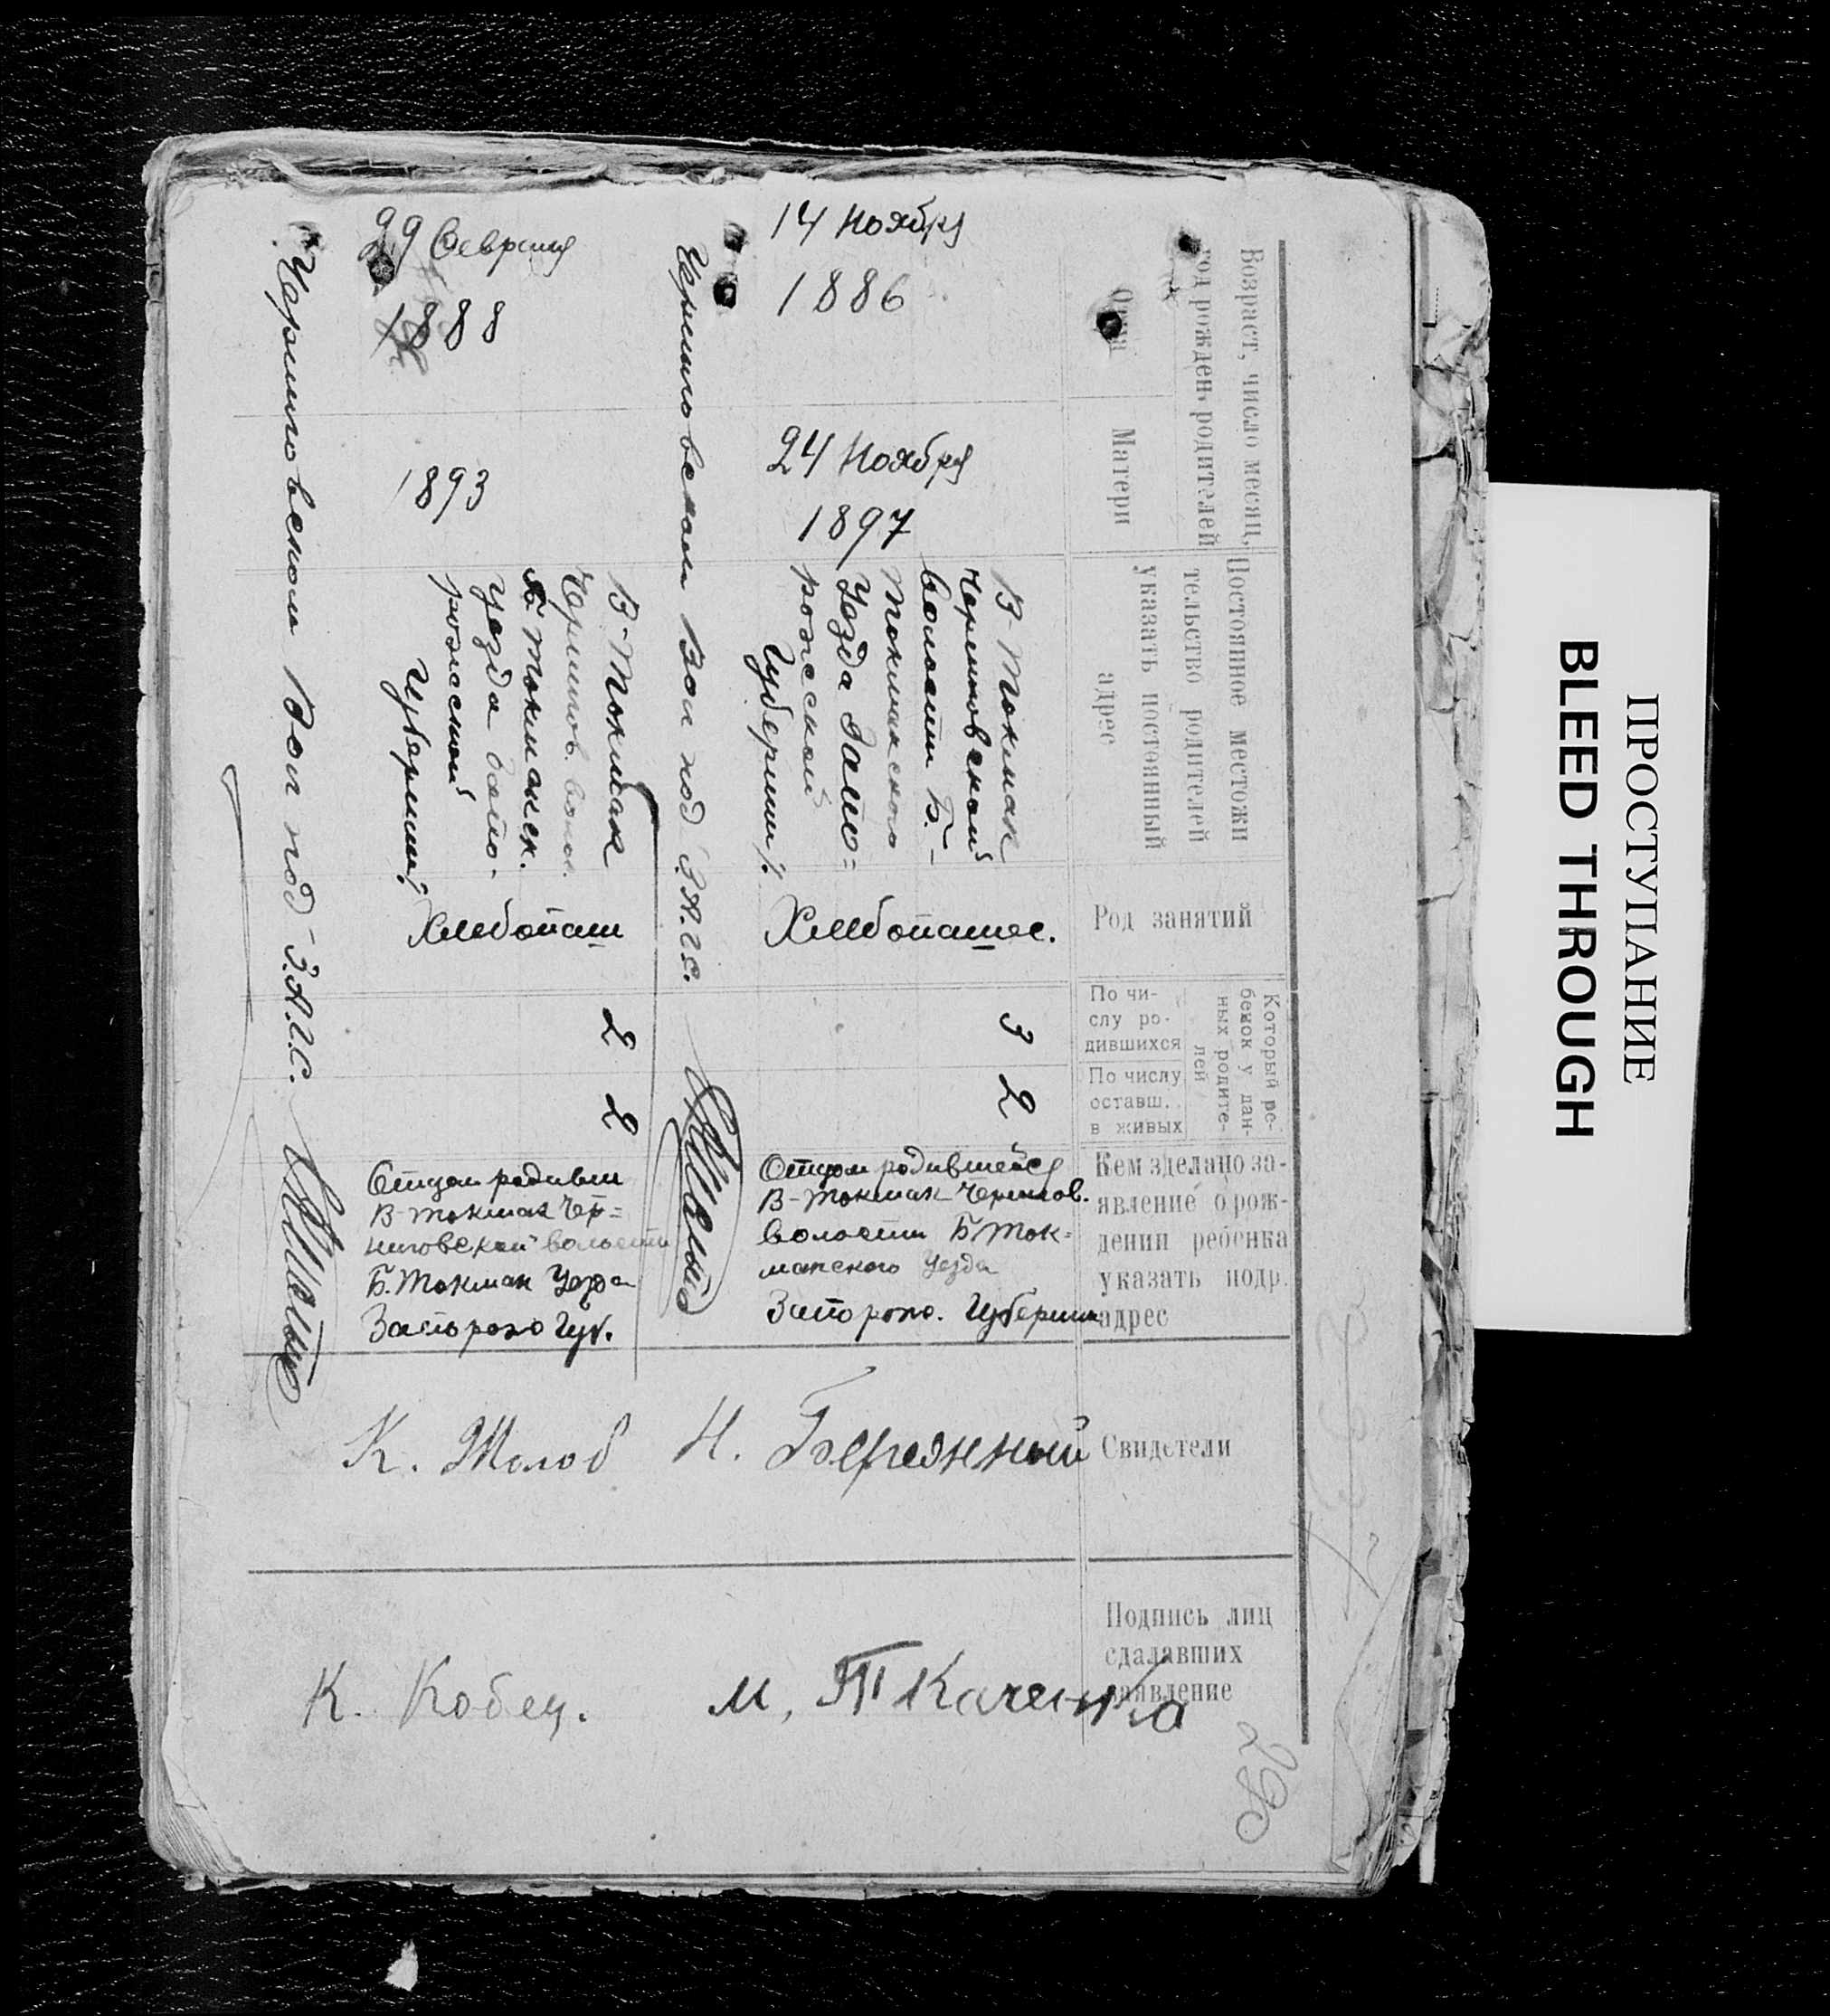 Возраст, число месяц,
год рожден. родителей
Отца
Матери
Постоянное местожи
тельство родителей
указать постоянный
адрес
Род занятий
Который ре-
бенок у дан-
ных родите-
лей
По чи-
слу ро-
дившихся
По числу
оставш.
в живых
Кем зделано за-
явление о рож-
дении ребенка
указать подр.
адрес
Свидетели
Подпись лиц
сдалавших
заявление
14 Ноября
1886
24 Ноября
1897
В-Токмак
Черниговской
волости Б.-
Токмакского
Уезда Запо=
рожской
Губернии
Хлебопашес.
3
2
Отцом родившейся
В-Токмак Чернигов.
волости Б Ток-
макского Уезда
Запорож. Губернии
Н. Бережный
М, Ткаченко
Черниговском Вол под З.А.Г.С.
29 Февраля
1888
1893
В-Токмак
Чернигов. волос.
Б. Токмакск.
Уезда Запо-
рожской
Губернии
Хлебопаш
2
2
Отцом родивш
В-Токмак Чер=
ниговской волости
Б. Токмак Уезда
Запорож Губ.
К. Жолоб
К. Кобец.
Черниговском Вол под З.А.Г.С.
295
ПРОСТУПАНИЕ
BLEED THROUGH